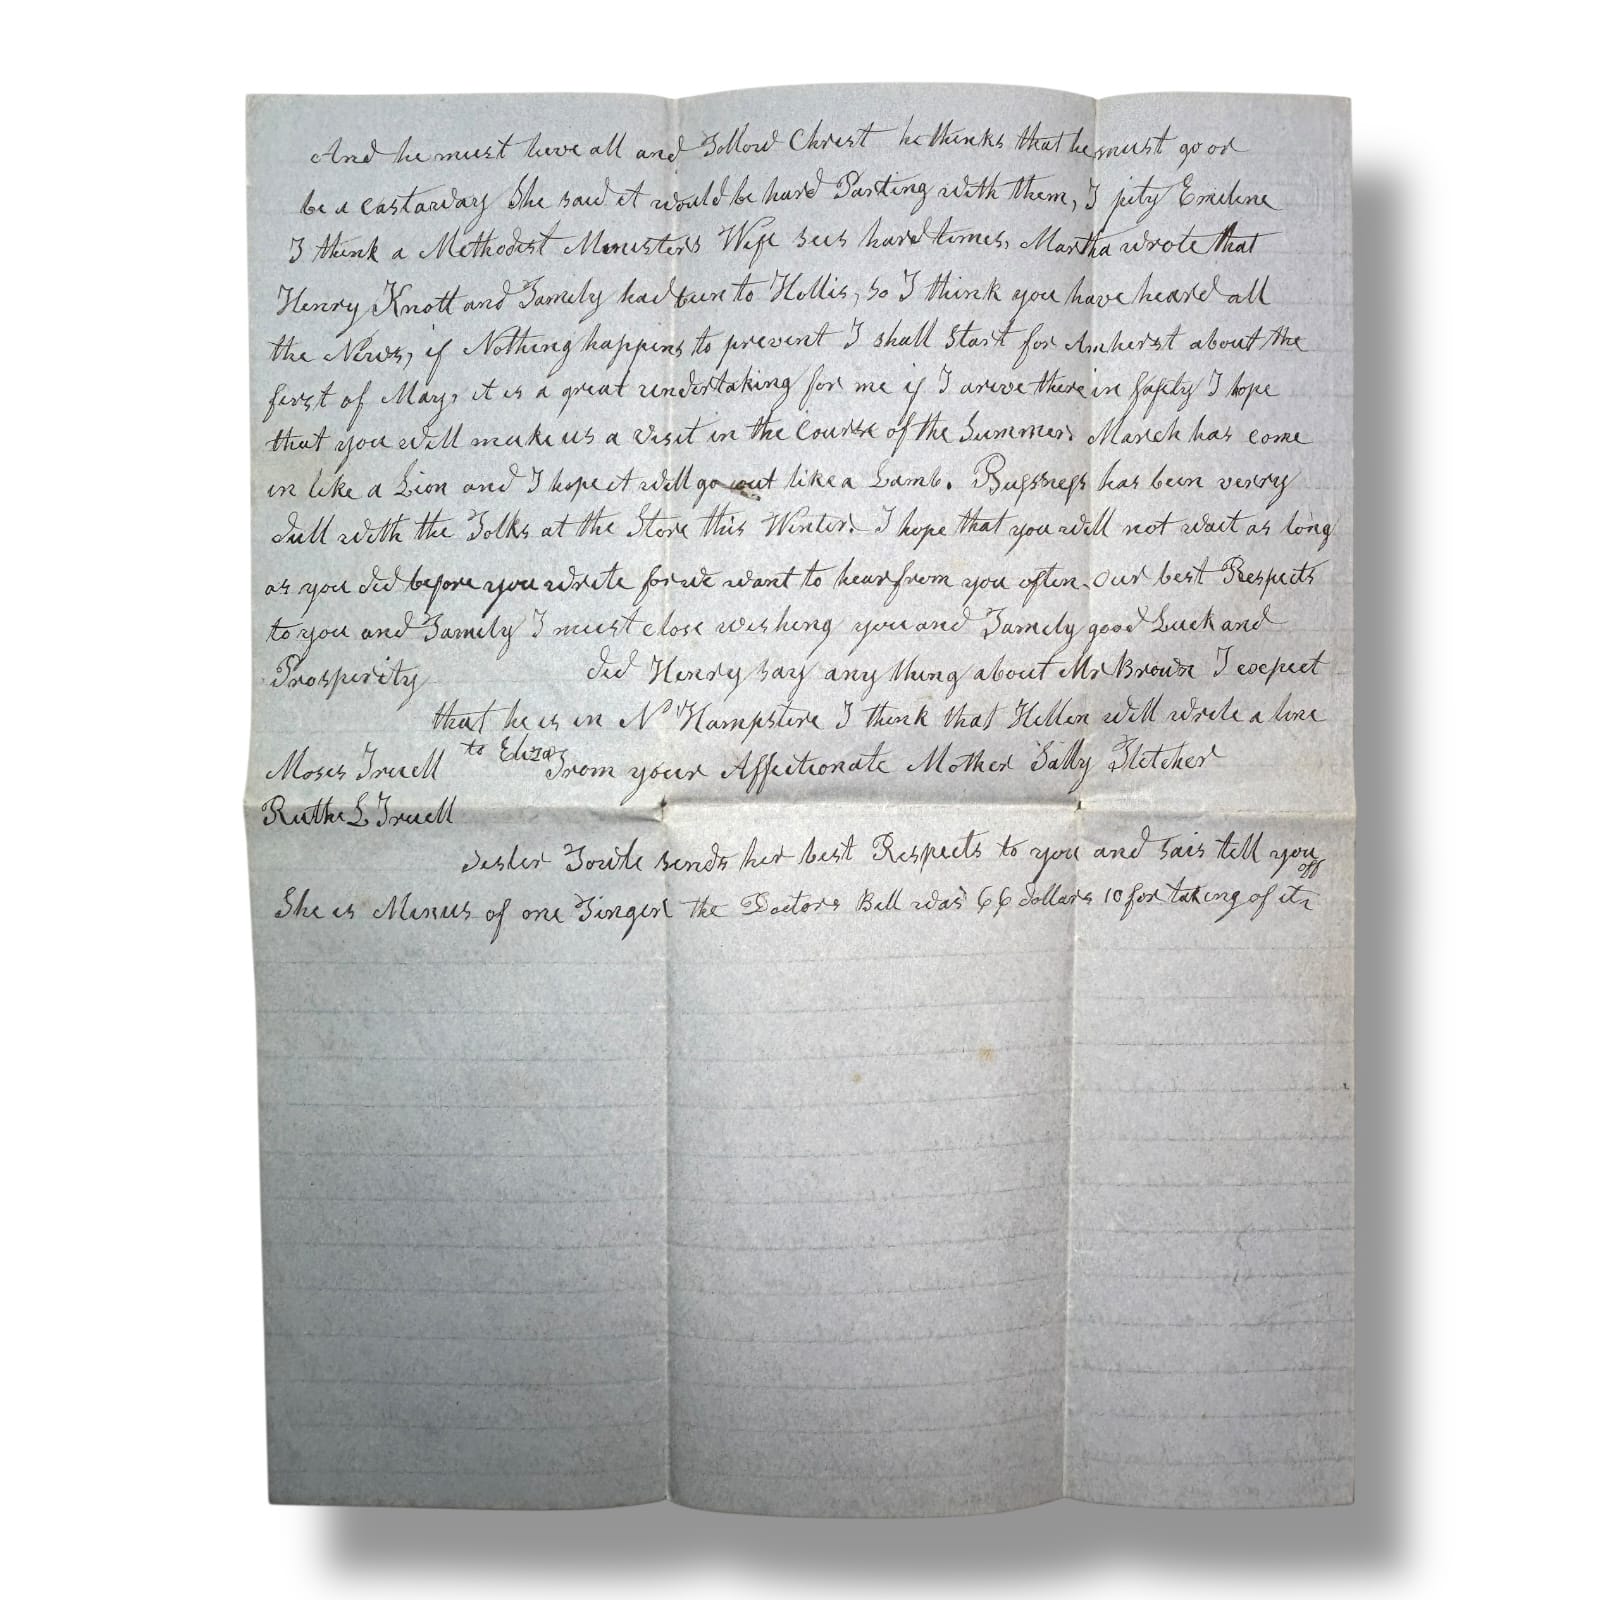 And he must leve all and Follow Christ he thinks that he must go or
be a castaway She said it would be hard Parting with them, I pity Emeline
I think a Methodist Ministers Wife sees hard times, Martha wrote that
Henry Knott and Family had been to Hollis, so I think you have heard all
the News, if Nothing happens to prevent I shall Start for Amherst about the
first of May, it is a great undertaking for me if I arive there in safety I hope
that you will make us a visit in the Course of the Summer March has come
in like a Lion and I hope it will go out like a Lamb. Bussness has been verry
dull with the Folks at the Store this Winter. I hope that you will not wait as long
as you did before you write for we want to hear from you often. Our best Respects
to you and Family I must close wishing you and Family good Luck and
Prosperity did Henry say any thing about Mr Brown I exepect
that he is in N Hampshire I think that Hellen will write a line
to Eliza
Moses Truell From your Affectionate Mother Sally Fletcher
Ruthe L Truell
Sester Towle sends her best Respects to you and sais tell you
off
She is Minus of one Finger the Doctors Bill was 66 dollars 10 for taking of it